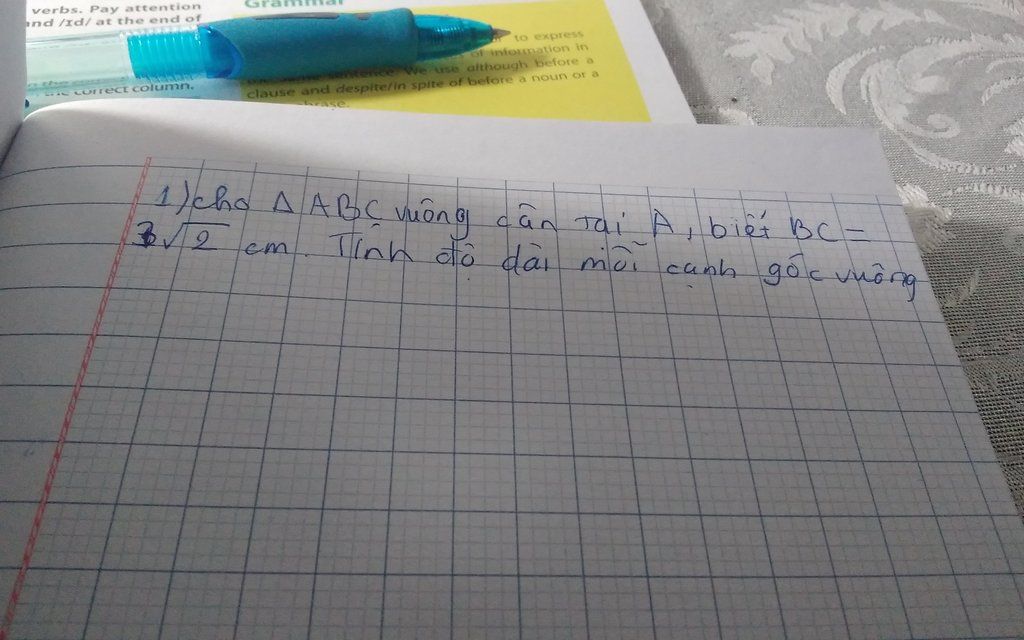 verbs. Pay attention
and /ɪd/ at the end of
correct column.
Grammar
to express
of information in
sentence. We use although before a
clause and despite/in spite of before a noun or a
phrase.
1) cho Δ ABC vuông cân tại A, biết BC =
3√2 cm. Tính độ dài mỗi cạnh góc vuông